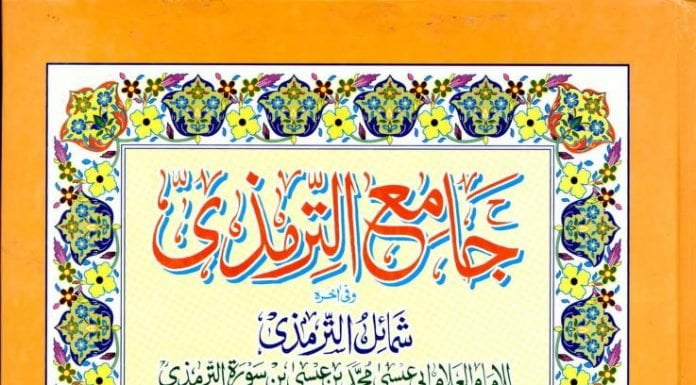 جَامِع التِّرمذِىّ
وفى اخره
شمائل الترمذى
للامام العلام ابى عيسى محمد بن عيسى بن سورة الترمذى